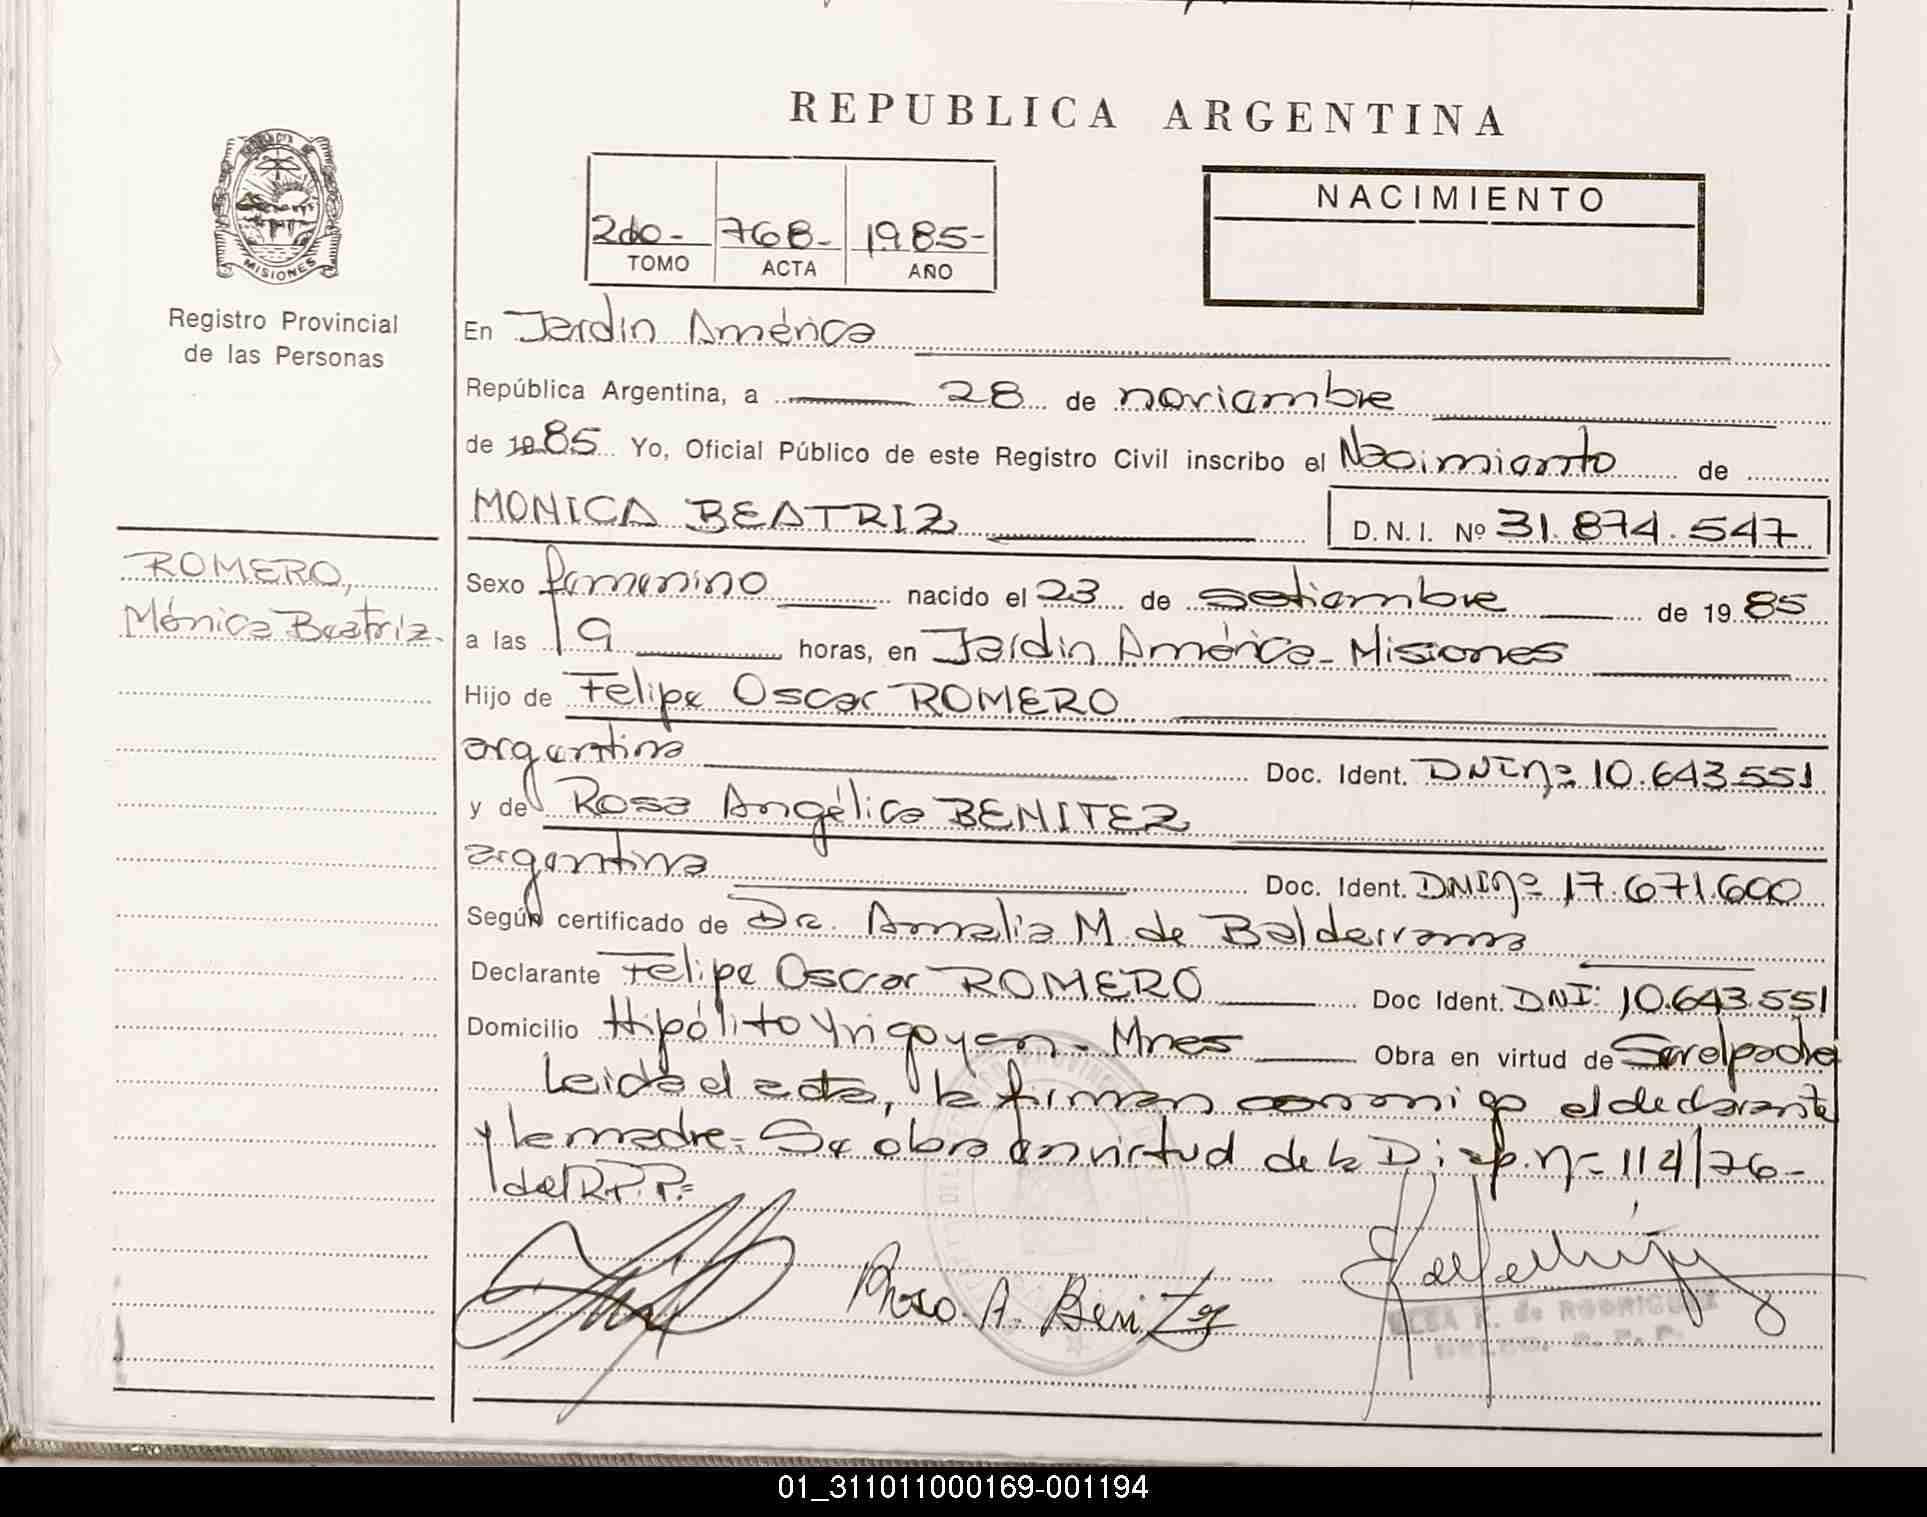 REPUBLICA ARGENTINA
MISIONES
Registro Provincial
de las Personas
2do- 768- 1985-
TOMO ACTA AÑO
NACIMIENTO
En Jardín América
República Argentina, a 28 de noviembre
de 1985 Yo, Oficial Público de este Registro Civil inscribo el Nacimiento de
MONICA BEATRIZ D.N.I. Nº 31.874.547
ROMERO,
Mónica Beatriz.
Sexo femenino nacido el 23 de setiembre de 1985
a las 19 horas, en Jardín América- Misiones
Hijo de Felipe Oscar ROMERO
argentina Doc. Ident. DNI nº 10.643.551
y de Rosa Angélica BENITEZ
argentina Doc. Ident. DNI nº 17.671.600
Según certificado de Dra. Amalia M. de Balderrama
Declarante Felipe Oscar ROMERO Doc Ident. DNI: 10.643.551
Domicilio Hipólito Yrigoyen- Mnes Obra en virtud de Ser el padre
Leída el acta, la firman conmigo el declarante
y la madre.= Se obra en virtud de la Disp. nº 114/76-
del R.P.P.=
Rosa. A. Benitez
ELSA K. de RODRIGUEZ
01_311011000169-001194